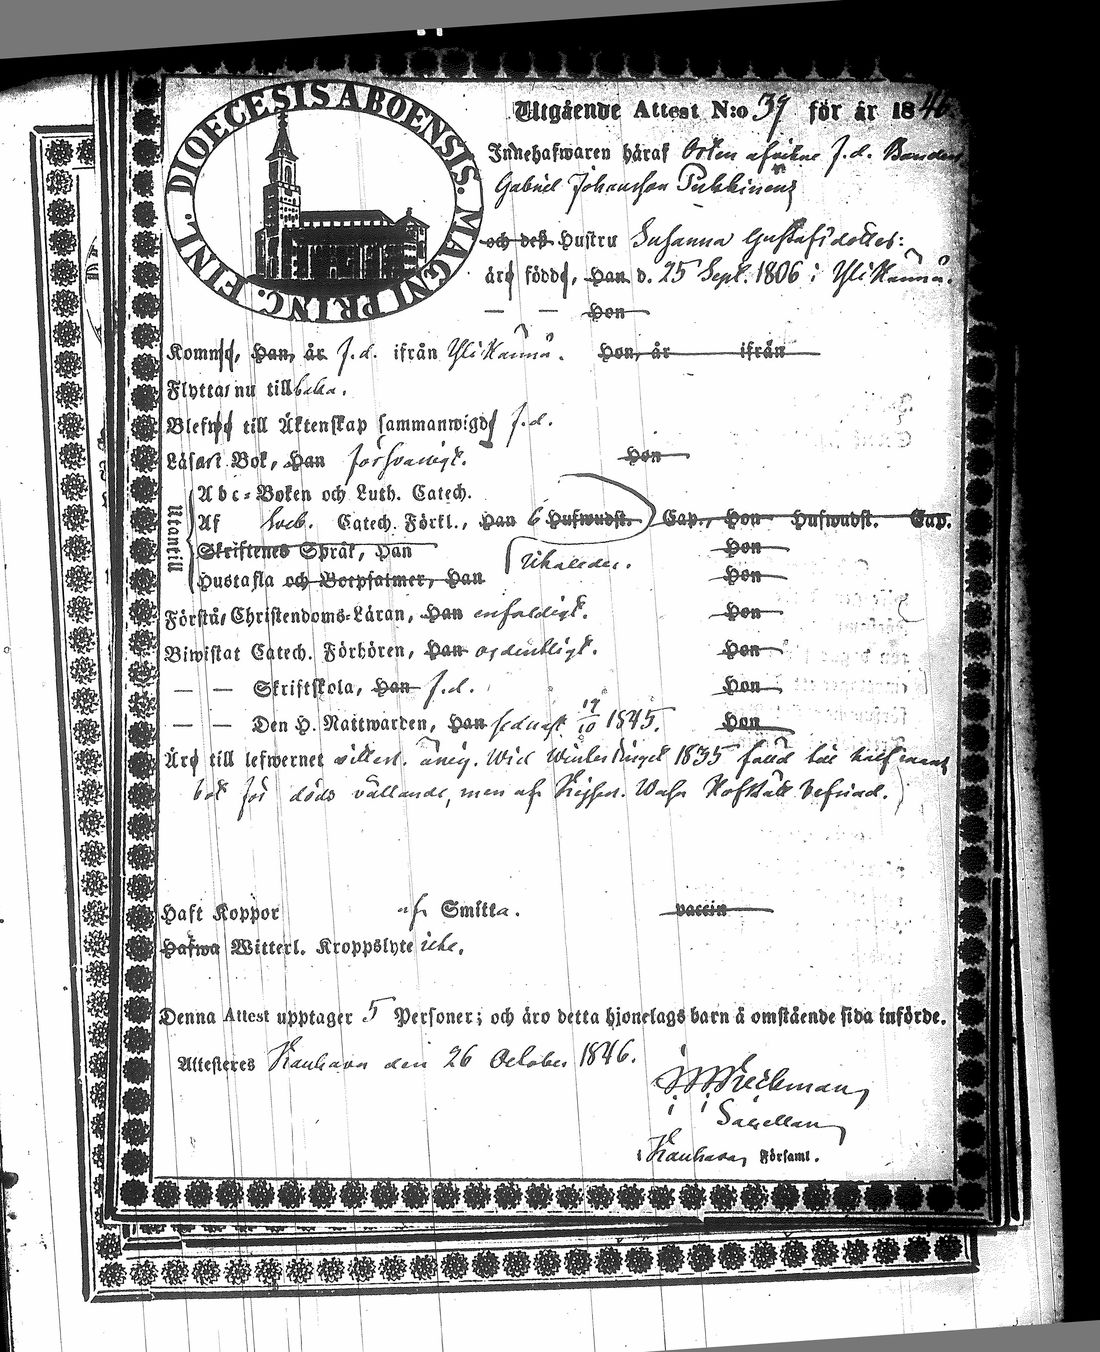 DIOECESIS ABOENSIS. MAGNI PRINC. FINL.
Utgående Attest N:o 39 för år 1846.
Innehafwaren häraf Orten afvikne f.d. Bonden
Gabriel Johansson Pukkinens
och deß Hustru Susanna Gustafsdotter:
äro födde, Han d. 25 Sept. 1806 i Ylikannu.
— — Hon
Komne, Han, år f.d. ifrån Ylikannu. Hon, år ifrån
Flyttar nu tillbaka.
Blefwo till Äktenskap sammanwigde f.d.
Läsart Bok, Han försvarligt. Hon
Utantill
Abc-Boken och Luth. Catech.
Af Sveb. Catech. Förkl., Han 6 Hufwudst. Cap., Hon Hufwudst. Cap.
Skriftenes Språk, Han Hon
Hustafla och Botpsalmer, Han Hon
Förstår Christendoms-Läran, Han enfaldigt. Hon
Biwistat Catech. Förhören, Han ordentligt. Hon
— — Skriftskola, Han f.d. Hon
— — Den H. Nattwarden, Han sednast 19/10 1845. Hon
Äro till lefwernet Wid Wintertinget 1835 fälld till half mans
bot för döds vållande, men af Kejser. Wasa Hofrätt befriad.
Haft Koppor af Smitta. vaccin
Hafwa Witterl. Kroppslyte icke.
Denna Attest upptager 5 Personer; och äro detta hjonelags barn å omstående sida införde.
Attesteras Kauhava den 26 October 1846.
Sacellan
i Kauhava Församl.